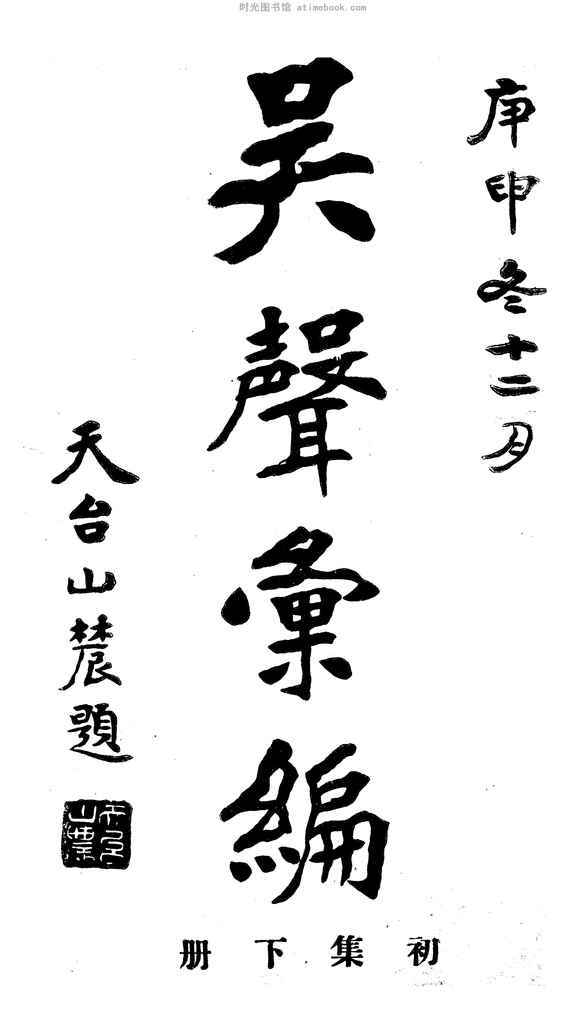 时光图书馆 atimebook.com
庚申冬十二月
吴聲彙編
天台山農題
天台山農
初集下册